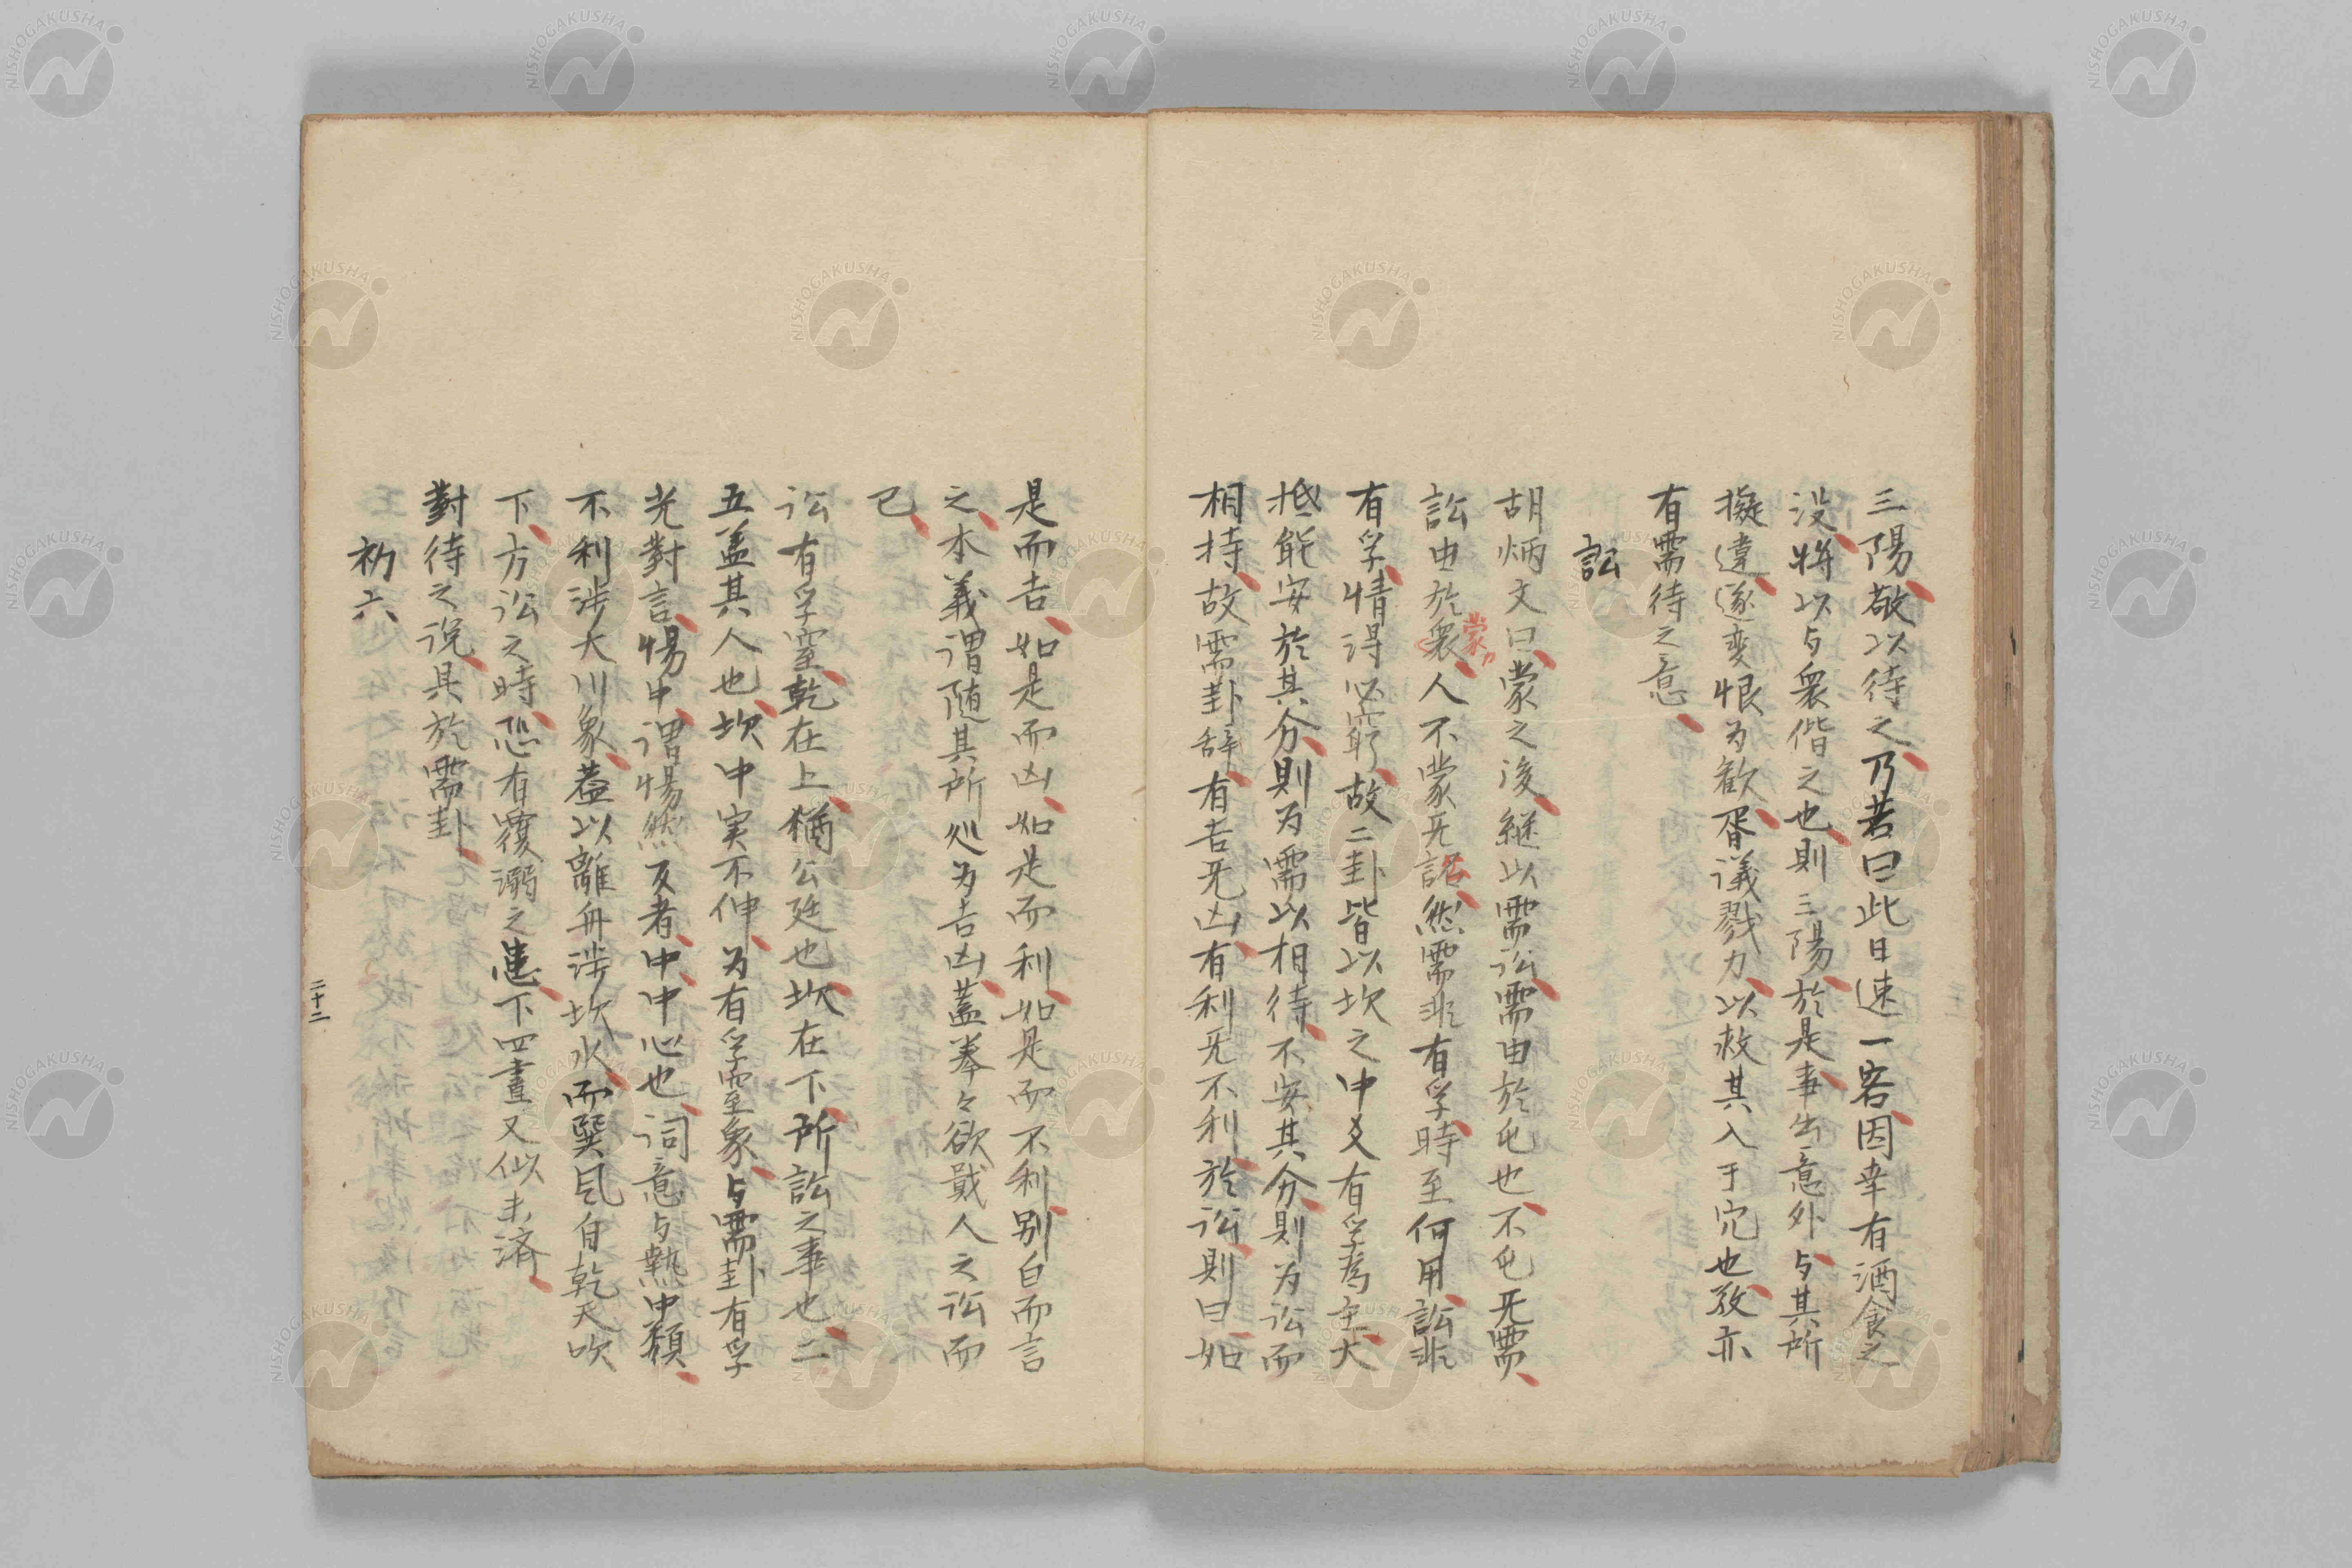 三陽敬以待之乃若曰此日速一客因幸有酒食之
没将以与衆偕之也則三陽於是事出意外与其所
擬違遂変恨为歓胥議戮力以救其入于穴也孜亦
有需待之意
訟
胡炳文曰蒙之後継以需訟需由於屯也不屯旡需
訟由於衆人不蒙旡訟然需非有孚時至何用訟非
蒙カ
有孚情得必窮故二卦皆以坎之中爻有孚為主大
抵能安於其分則为需以相待不安其分則为訟而
相持故需卦辞有吉旡凶有利旡不利於訟則曰如
是而吉如是而凶如是而利如是而不利別白而言
之本義謂随其所処为吉凶蓋拳々欲戢人之訟而
已
訟有孚窒乾在上猶公廷也坎在下所訟之事也二
五盖其人也坎中実不伸为有孚窒象与需卦有孚
光對言惕中謂惕然反者中中心也词意与熱中類
不利渉大川象蓋以離舟渉坎水而巽風自乾天吹
下方訟之時恐有覆溺之患下四畫又似未済
對待之説具於需卦
初六
二十二
NISHOGAKUSHA